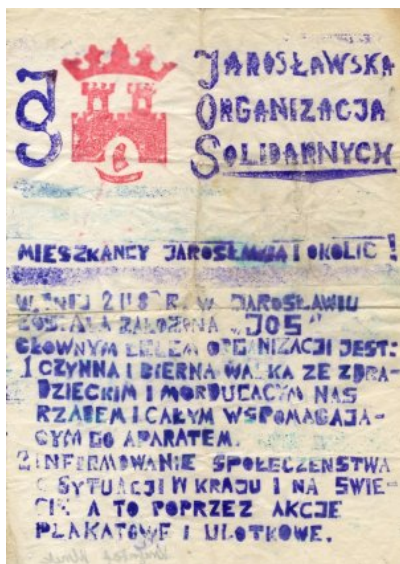 JOS
JAROSŁAWSKA
ORGANIZACJA
SOLIDARNYCH
MIESZKAŃCY JAROSŁAWIA I OKOLIC !
W DNIU R. W JAROSŁAWIU
ZOSTAŁA ZAŁOŻONA „JOS”
GŁÓWNYM CELEM ORGANIZACJI JEST:
1 CZYNNA I BIERNA WALKA ZE ZDRA-
DZIECKIM I MORDUCACYM NAS
RZĄDEM I CAŁYM WSPOMAGAJĄ-
CYM GO APARATEM.
2 INFORMOWANIE SPOŁECZEŃSTWA
O SYTUACJI W KRAJU I NA ŚWIE-
CIE A TO POPRZEZ AKCJE
PLAKATOWE I ULOTKOWE.